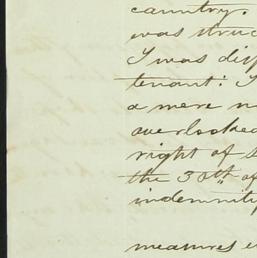 country.
was struc
I was disp
tenant: I
a mere n
overlooked
right of s
the 30th of
indemnity
measures e